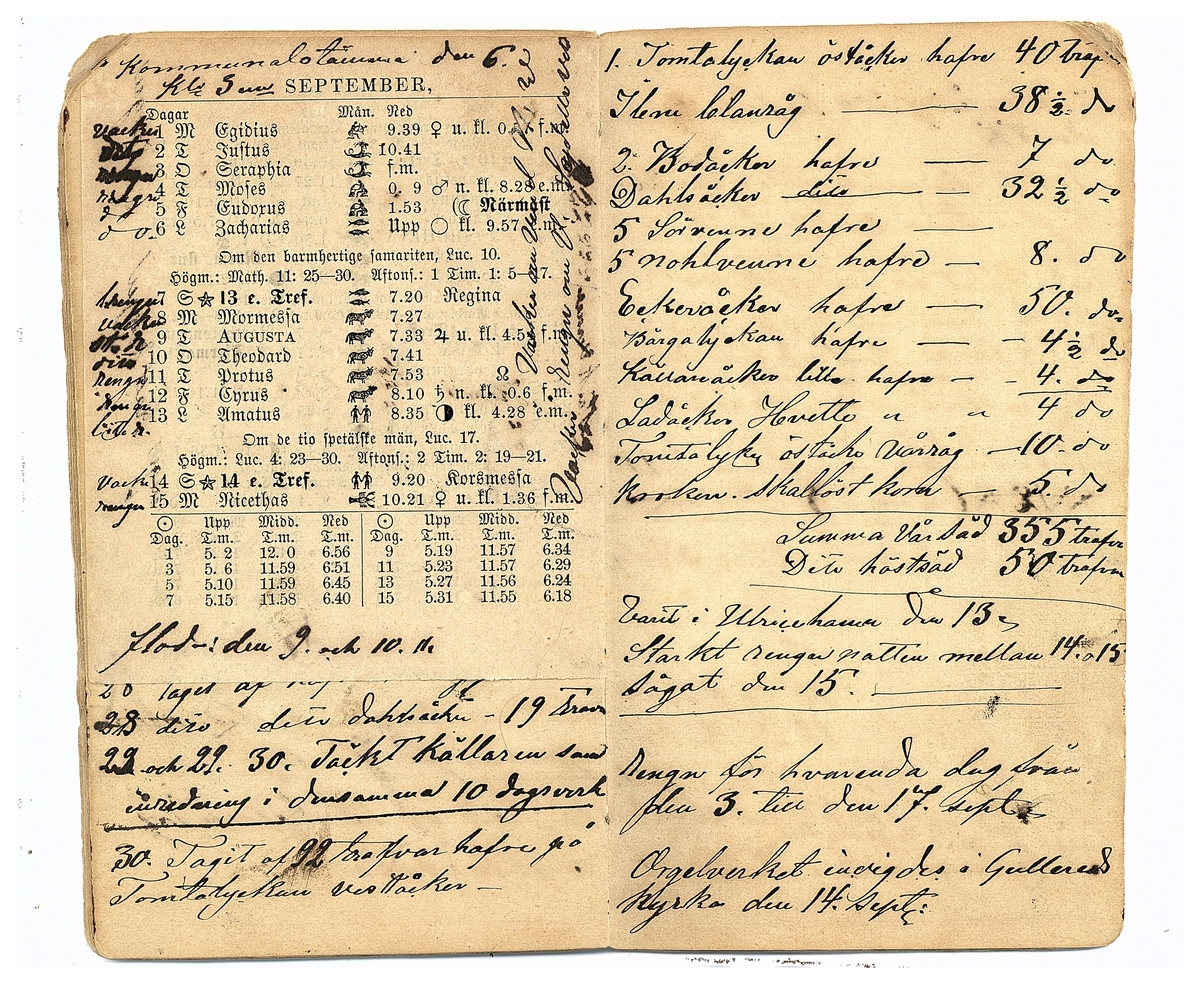 Kommunalstämma den 6.
Kl: 3 em SEPTEMBER,
Dagar Mån. Ned
vacker 1 M Egidius 9.39 ♀ u. kl. f.m.
2 T Justus 10.41
3 O Seraphia f.m.
rengn 4 T Moses 0. 9 ♂ n. kl. 8.28 e.m.
do 5 F Eudoxus 1.53 (☾ Närmast
do 6 L Zacharias Upp ○ kl. 9.57 e.m.
Om den barmhertige samariten, Luc. 10.
Högm.: Math. 11: 25—30. Aftons.: 1 Tim. 1: 5—17.
7 S ☆ 13 e. Tref. 7.20 Regina
vacker 8 M Mormessa 7.27
9 T AUGUSTA 7.33 ♃ u. kl. 4.5 f.m.
dito 10 O Theodard 7.41
rengn 11 T Protus 7.53 ☊
12 F Cyrus 8.10 ♄ n. kl. 0.6 f.m.
13 L Amatus 8.35 ◑ kl. 4.28 e.m.
Om de tio spetälske män, Luc. 17.
Högm.: Luc. 4: 23—30. Aftons.: 2 Tim. 2: 19—21.
vack 14 S ☆ 14 e. Tref. 9.20 Korsmessa
rengn 15 M Nicethas 10.21 ♀ u. kl. 1.36 f.m.
☉ Upp Midd. Ned ☉ Upp Midd. Ned
Dag. T.m. T.m. T.m. Dag. T.m. T.m. T.m.
1 5. 2 12. 0 6.56 9 5.19 11.57 6.34
3 5. 6 11.59 6.51 11 5.23 11.57 6.29
5 5.10 11.59 6.45 13 5.27 11.56 6.24
7 5.15 11.58 6.40 15 5.31 11.55 6.18
flod: den 9. och 10.
28 Taget af
28 dito dito dahlsåker - 19 trava
och 29. 30. Täckt Källaren samt
inredning i densamma 10 dagsverk
30. Tagit af 92 trafvar hafre på
Tomtalyckan veståker —
1. Tomtalyckan öståker hafre 40 traf
Item blanråg — 38 ½ do
2. Bodåcker hafre — 7 do
Dahlsåcker dito — 32 ½ do
5 Sörvenne hafre —
5 nohlvenne hafre — 8. do
Eckeråcker hafre — 50. do
Bårgalyckan hafre — 4 ½ do
Källaråcker litte hafre — 4. do
Ladåcker Hvette " " 4 do
Tomtalycke öståcke Vårråg — 10. do
Kroken. Skallöst korn — 5. do
Summa Vårsäd 355 trafva
Dito höstsäd 50 trafva
Varit i Ulricehamn den 13
Starkt rengn natten mellan 14. o 15
Sågat den 15. —
Rengn för hvarenda dag från
den 3. till den 17. sept.
Orgelverket invigdes i Gullereds
Kyrka den 14. Sept: